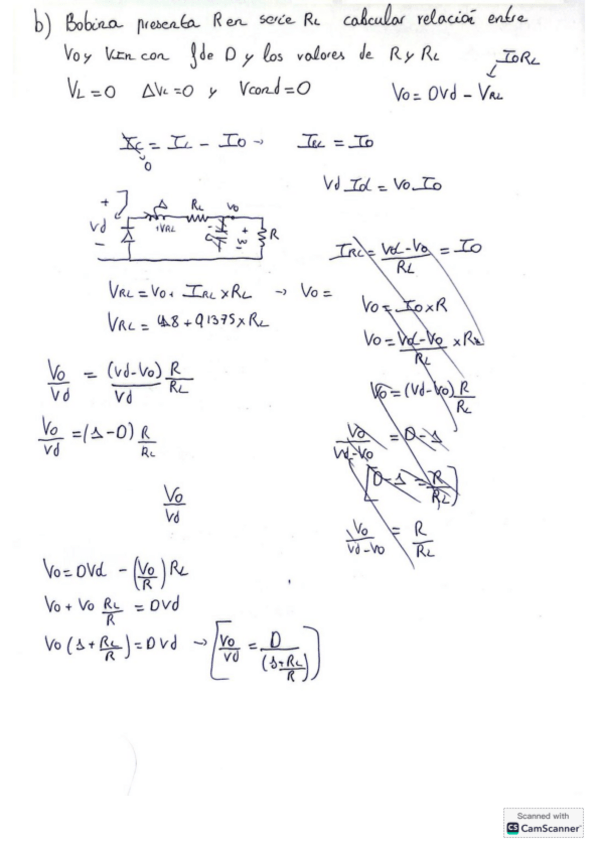 b) Bobina presenta R en serie RL calcular relació entre
Vo y Vin con f de D y los valores de R y RL
IoRL
VL = 0 ΔVL = 0 y Vcond = 0
Vo = DVd - VRL
Ic = IL - Io → IRL = Io
0
Vd Id = Vo Io
+ Δ RL Vo
Vd +VRL + R
-
IRL = Vd-Vo/RL = Io
VRL = Vo + IRL x RL → Vo =
Vo = Io x R
VRL = 4.8 + 0.1375 x RL
Vo = Vd-Vo/RL x RL
Vo/Vd = (Vd-Vo)/Vd R/RL
Vo = (Vd-Vo) R/RL
Vo/Vd = (1-D) R/RL
Vo/Vd-Vo = D-1
[D-1 = R/RL]
Vo/Vd
Vo/Vd-Vo = R/RL
Vo = DVd - (Vo/R) RL
Vo + Vo RL/R = DVd
Vo (1 + RL/R) = DVd → [Vo/Vd = D/(1+RL/R)]
Scanned with
CS CamScanner